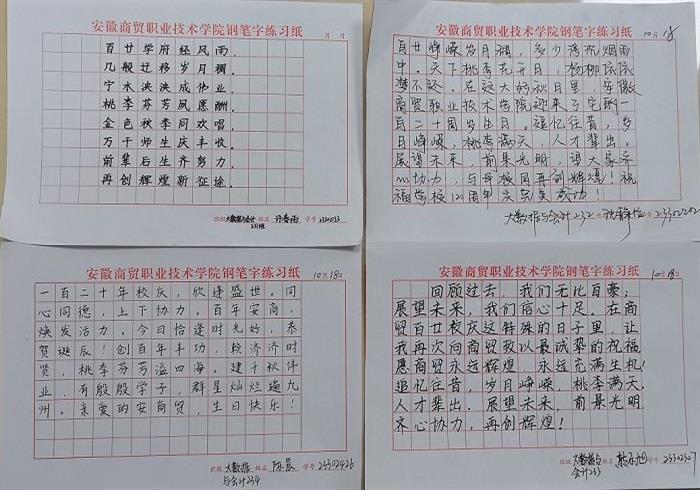 安徽商贸职业技术学院钢笔字练习纸
月 日
百廿学府经风雨,
几般迁移岁月稠,
宁水泱泱成伟业,
桃李芬芳夙愿酬,
金色秋季同欢唱,
万千师生庆丰收,
前辈后生齐努力,
再创辉煌新征途.
班级 大数据与会计 姓名 学号
231班
安徽商贸职业技术学院钢笔字练习纸
10月18
百廿峥嵘岁月稠,多少落沉烟雨
中。天下桃李花开日,杨柳依依
梦不谂。在这大好秋日里,安徽
商贸职业技术学院迎来了它的一
百二十周岁生日。追忆往昔,岁
月峥嵘,桃李满天,人才辈出。
展望未来,前景光明,望大家齐
心协力,与母校同再创辉煌!祝
福学校120周年庆完美成功!
大数据与会计232班 姓名 学号
安徽商贸职业技术学院钢笔字练习纸
10月18日
一百二十年校庆,欣逢盛世。同
心同德,上下协力。百年安商,
焕发活力。今日恰逢时光好,恭
贺诞辰!创百年丰功,赖济济时
贤,桃李芬芳溢四海。建千秋伟
业,有殷殷学子,群星灿烂遍九
州。亲爱的安商贸,生日快乐!
班级 大数据 姓名 陈晨 学号 23302426
与会计234
安徽商贸职业技术学院钢笔字练习纸
10月18日
回顾过去,我们无比自豪;
展望未来,我们信心十足。在商
贸百廿校庆这特殊的日子里,让
我再次向商贸致以最诚挚的祝福,
愿商贸永远辉煌 永远充满生机!
追忆往昔,岁月峥嵘,桃李满天,
人才辈出。展望未来,前景光明
齐心协力,再创辉煌!
班级 大数据与 姓名 学号 23302307
会计233